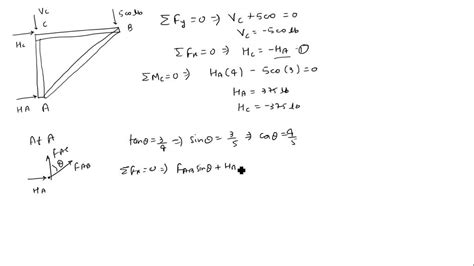 Vc
500lb
C
B
Hc
HA
A
ΣFy=0 ⇒ Vc+500=0
Vc=-500lb
ΣFx=0 ⇒ Hc=-HA -①
ΣMc=0 ⇒ HA(4) - 500(3)=0
HA=375lb
Hc=-375lb
At A
FAC
θ
FAB
HA
tanθ=3/4 ⇒ sinθ=3/5 ⇒ cosθ=4/5
ΣFx=0 ⇒ FAB sinθ + HA